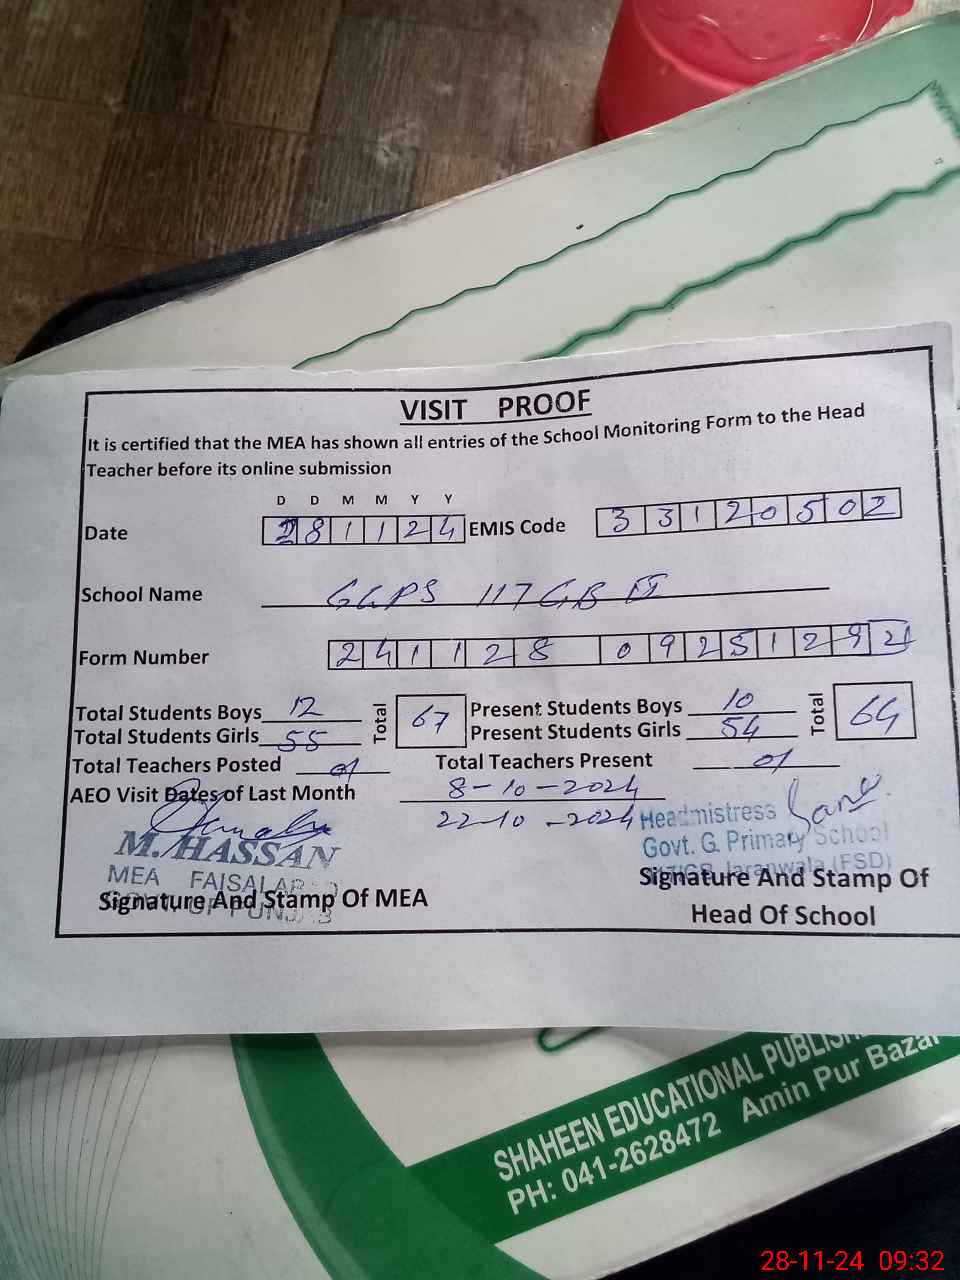 VISIT PROOF
It is certified that the MEA has shown all entries of the School Monitoring Form to the Head
Teacher before its online submission
D D M M Y Y
Date 281124 EMIS Code 33120502
School Name GGPS 117 GB II
Form Number 241128 0925129
Total Students Boys 12 Total 67 Present Students Boys 10 Total 64
Total Students Girls 55 Present Students Girls 54
Total Teachers Posted 01 Total Teachers Present 01
AEO Visit Dates of Last Month 8-10-2024
22-10-2024
Headmistress
Govt. G. Primary School
Jaranwala (FSD)
M. HASSAN
MEA FAISALABAD
GOVT. OF PUNJAB
Signature And Stamp Of MEA
Signature And Stamp Of
Head Of School
SHAHEEN EDUCATIONAL
PH: 041-2628472 Amin Pur Bazar
28-11-24 09:32